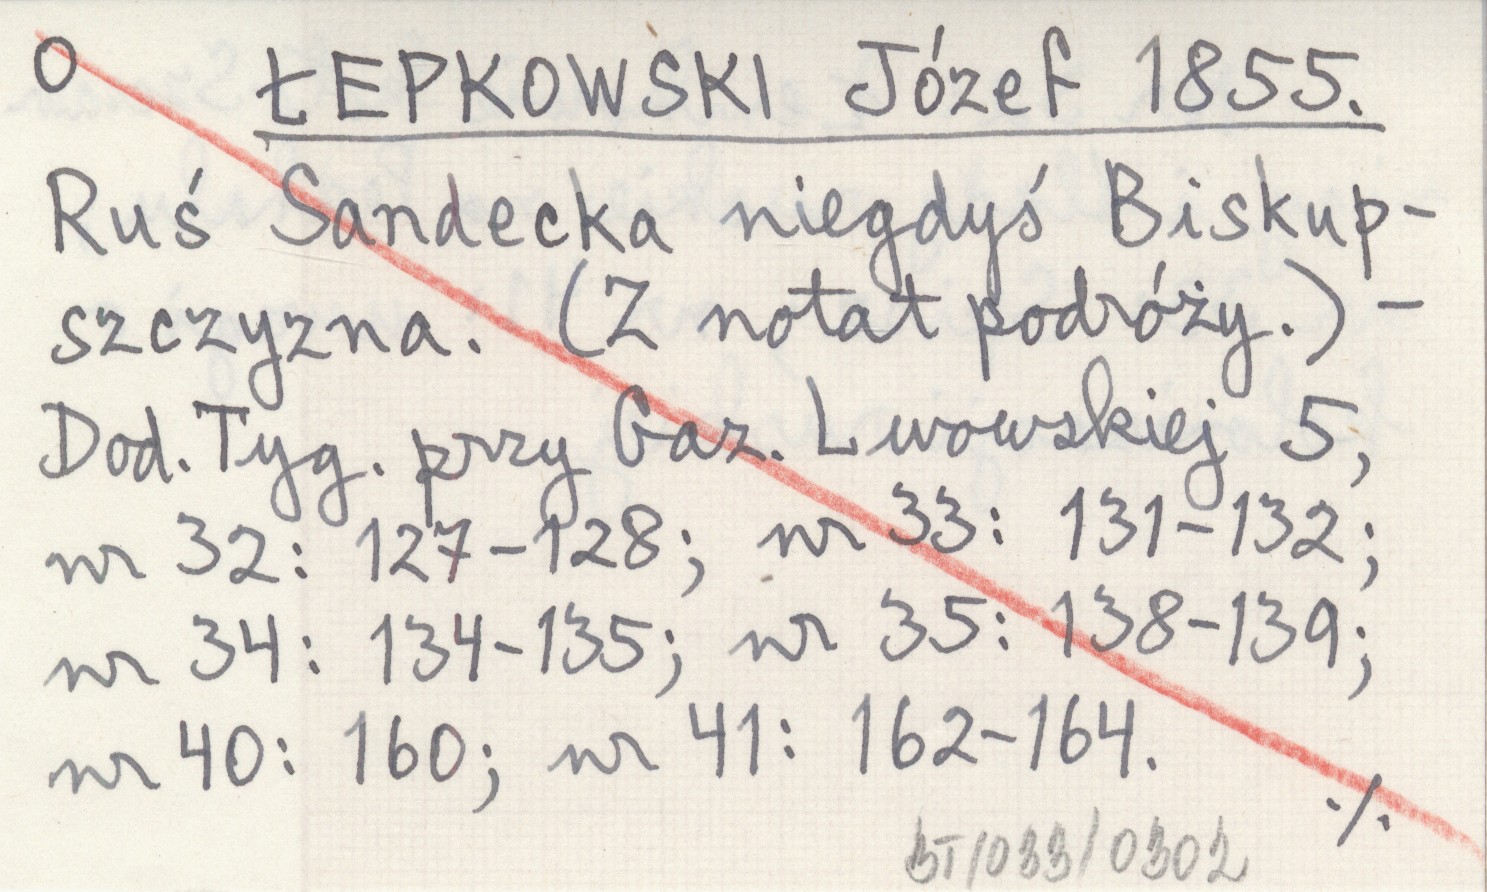 O ŁEPKOWSKI Józef 1855.
Ruś Sandecka niegdyś Biskup-
szczyzna. (Z notat podróży.) -
Dod. Tyg. przy Gaz. Lwowskiej 5,
nr 32: 127-128; nr 33: 131-132;
nr 34: 134-135; nr 35: 138-139;
nr 40: 160; nr 41: 162-164.
./.
BT/033/0302